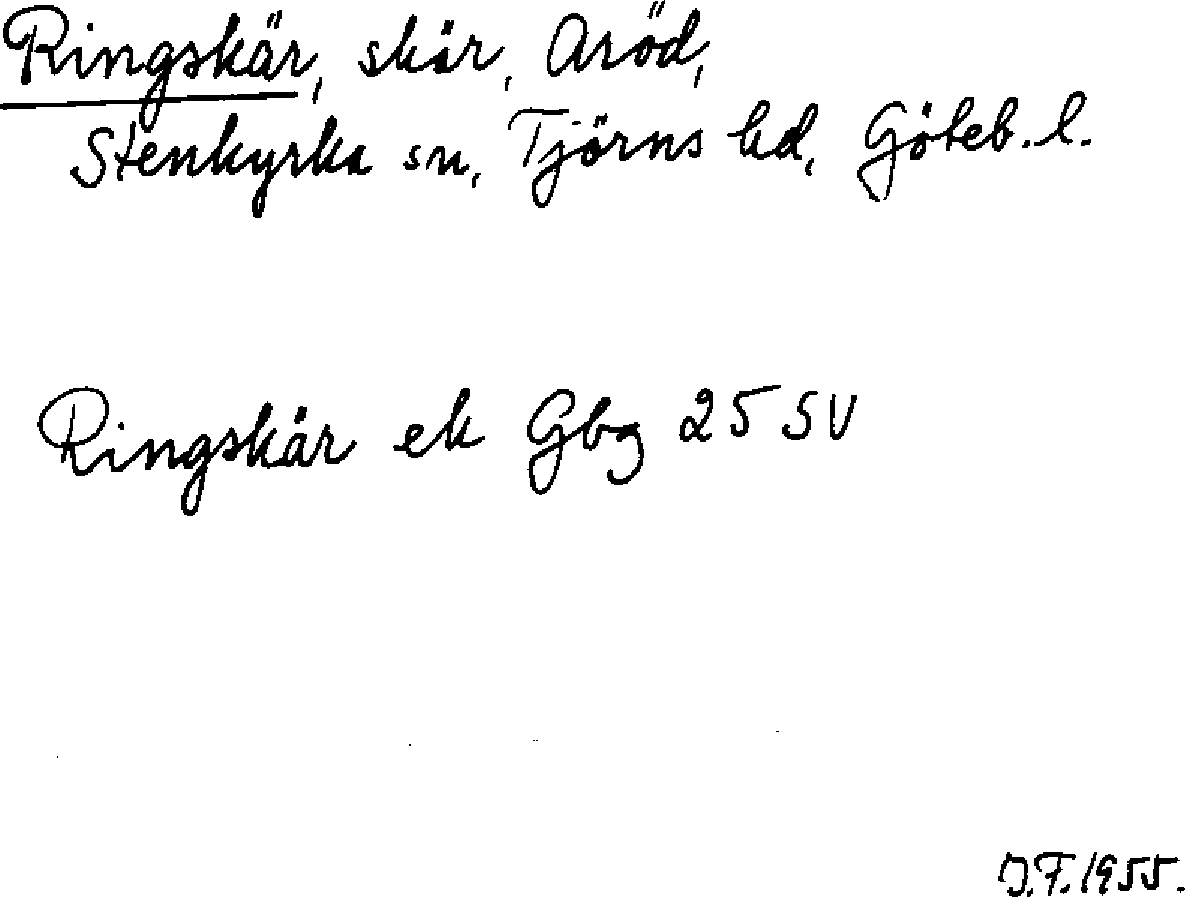 Ringskär, skär, Aröd,
Stenkyrka sn, Tjörns hd, Göteb. l.
Ringskär ek Gbg 25 SV
D.F. 1955.